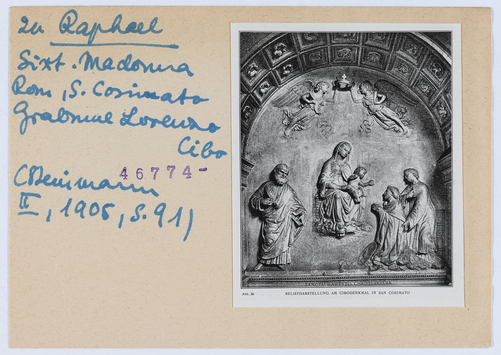 Zu Raphael
Sixt. Madonna
Rom, S. Cosimato
Grabmal Lorenzo
Cibo
46774-
II, 1905, S. 91)
RELIEFDARSTELLUNG AM CIBODENKMAL IN SAN COSIMATO